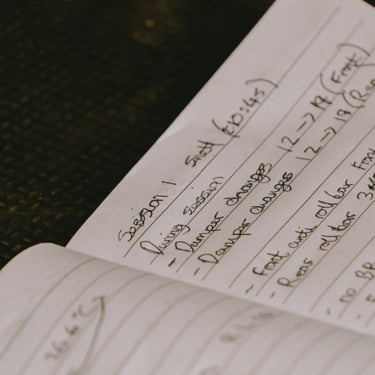 Session 1 Start (E10:45)
During session
- Damper changes 12 → 17 (Front)
- Damper changes 12 → 19 (Rea
- Front anti roll bar Front
- Rear roll bar 3
- no
26.6°C